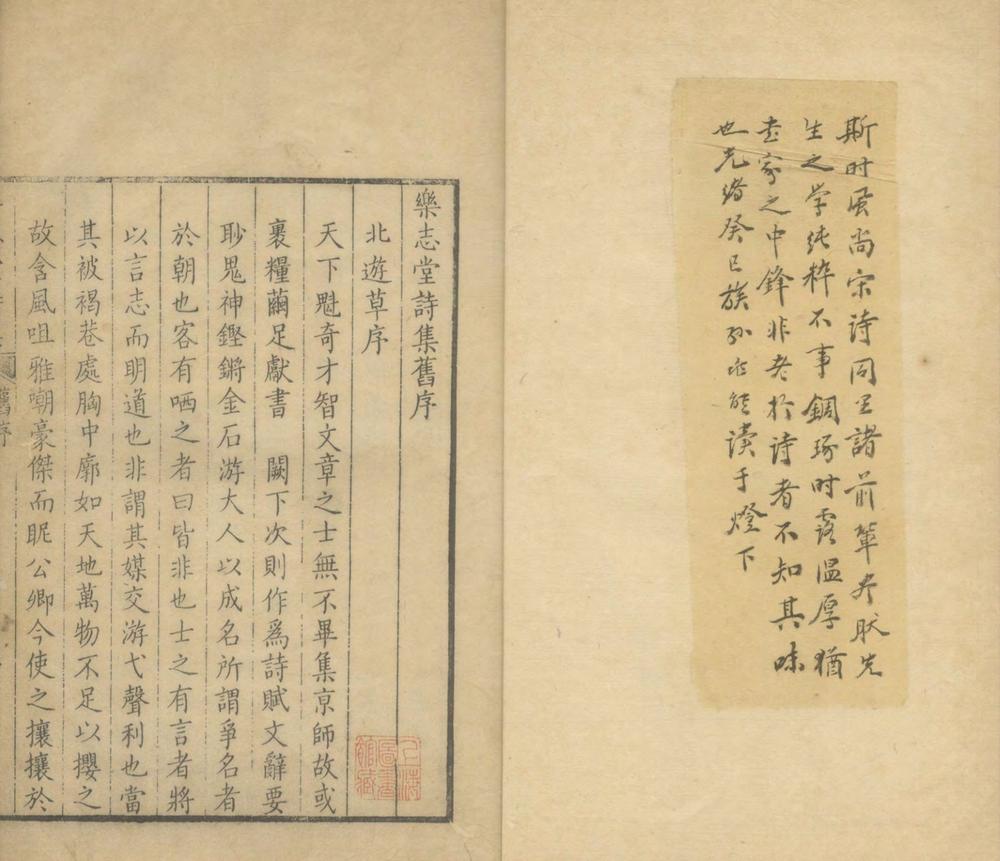 斯时風尚宋诗同里諸前輩先
生之学纯粹不事錭琢时露温厚猶
书家之中鋒非老於诗者不知其味
也光绪癸巳族孙能读于燈下
樂志堂詩集舊序
北遊草序
天下魁奇才智文章之士無不畢集京師故或
裹糧繭足獻書　闕下次則作爲詩賦文辭要
眇鬼神鏗鏘金石游大人以成名所謂爭名者
於朝也客有哂之者曰皆非也士之有言者將
以言志而明道也非謂其媒交游弋聲利也當
其被褐巷處胸中廓如天地萬物不足以攖之
故含風咀雅嘲豪傑而眤公卿今使之攘攘於
舊序
上海圖書館藏